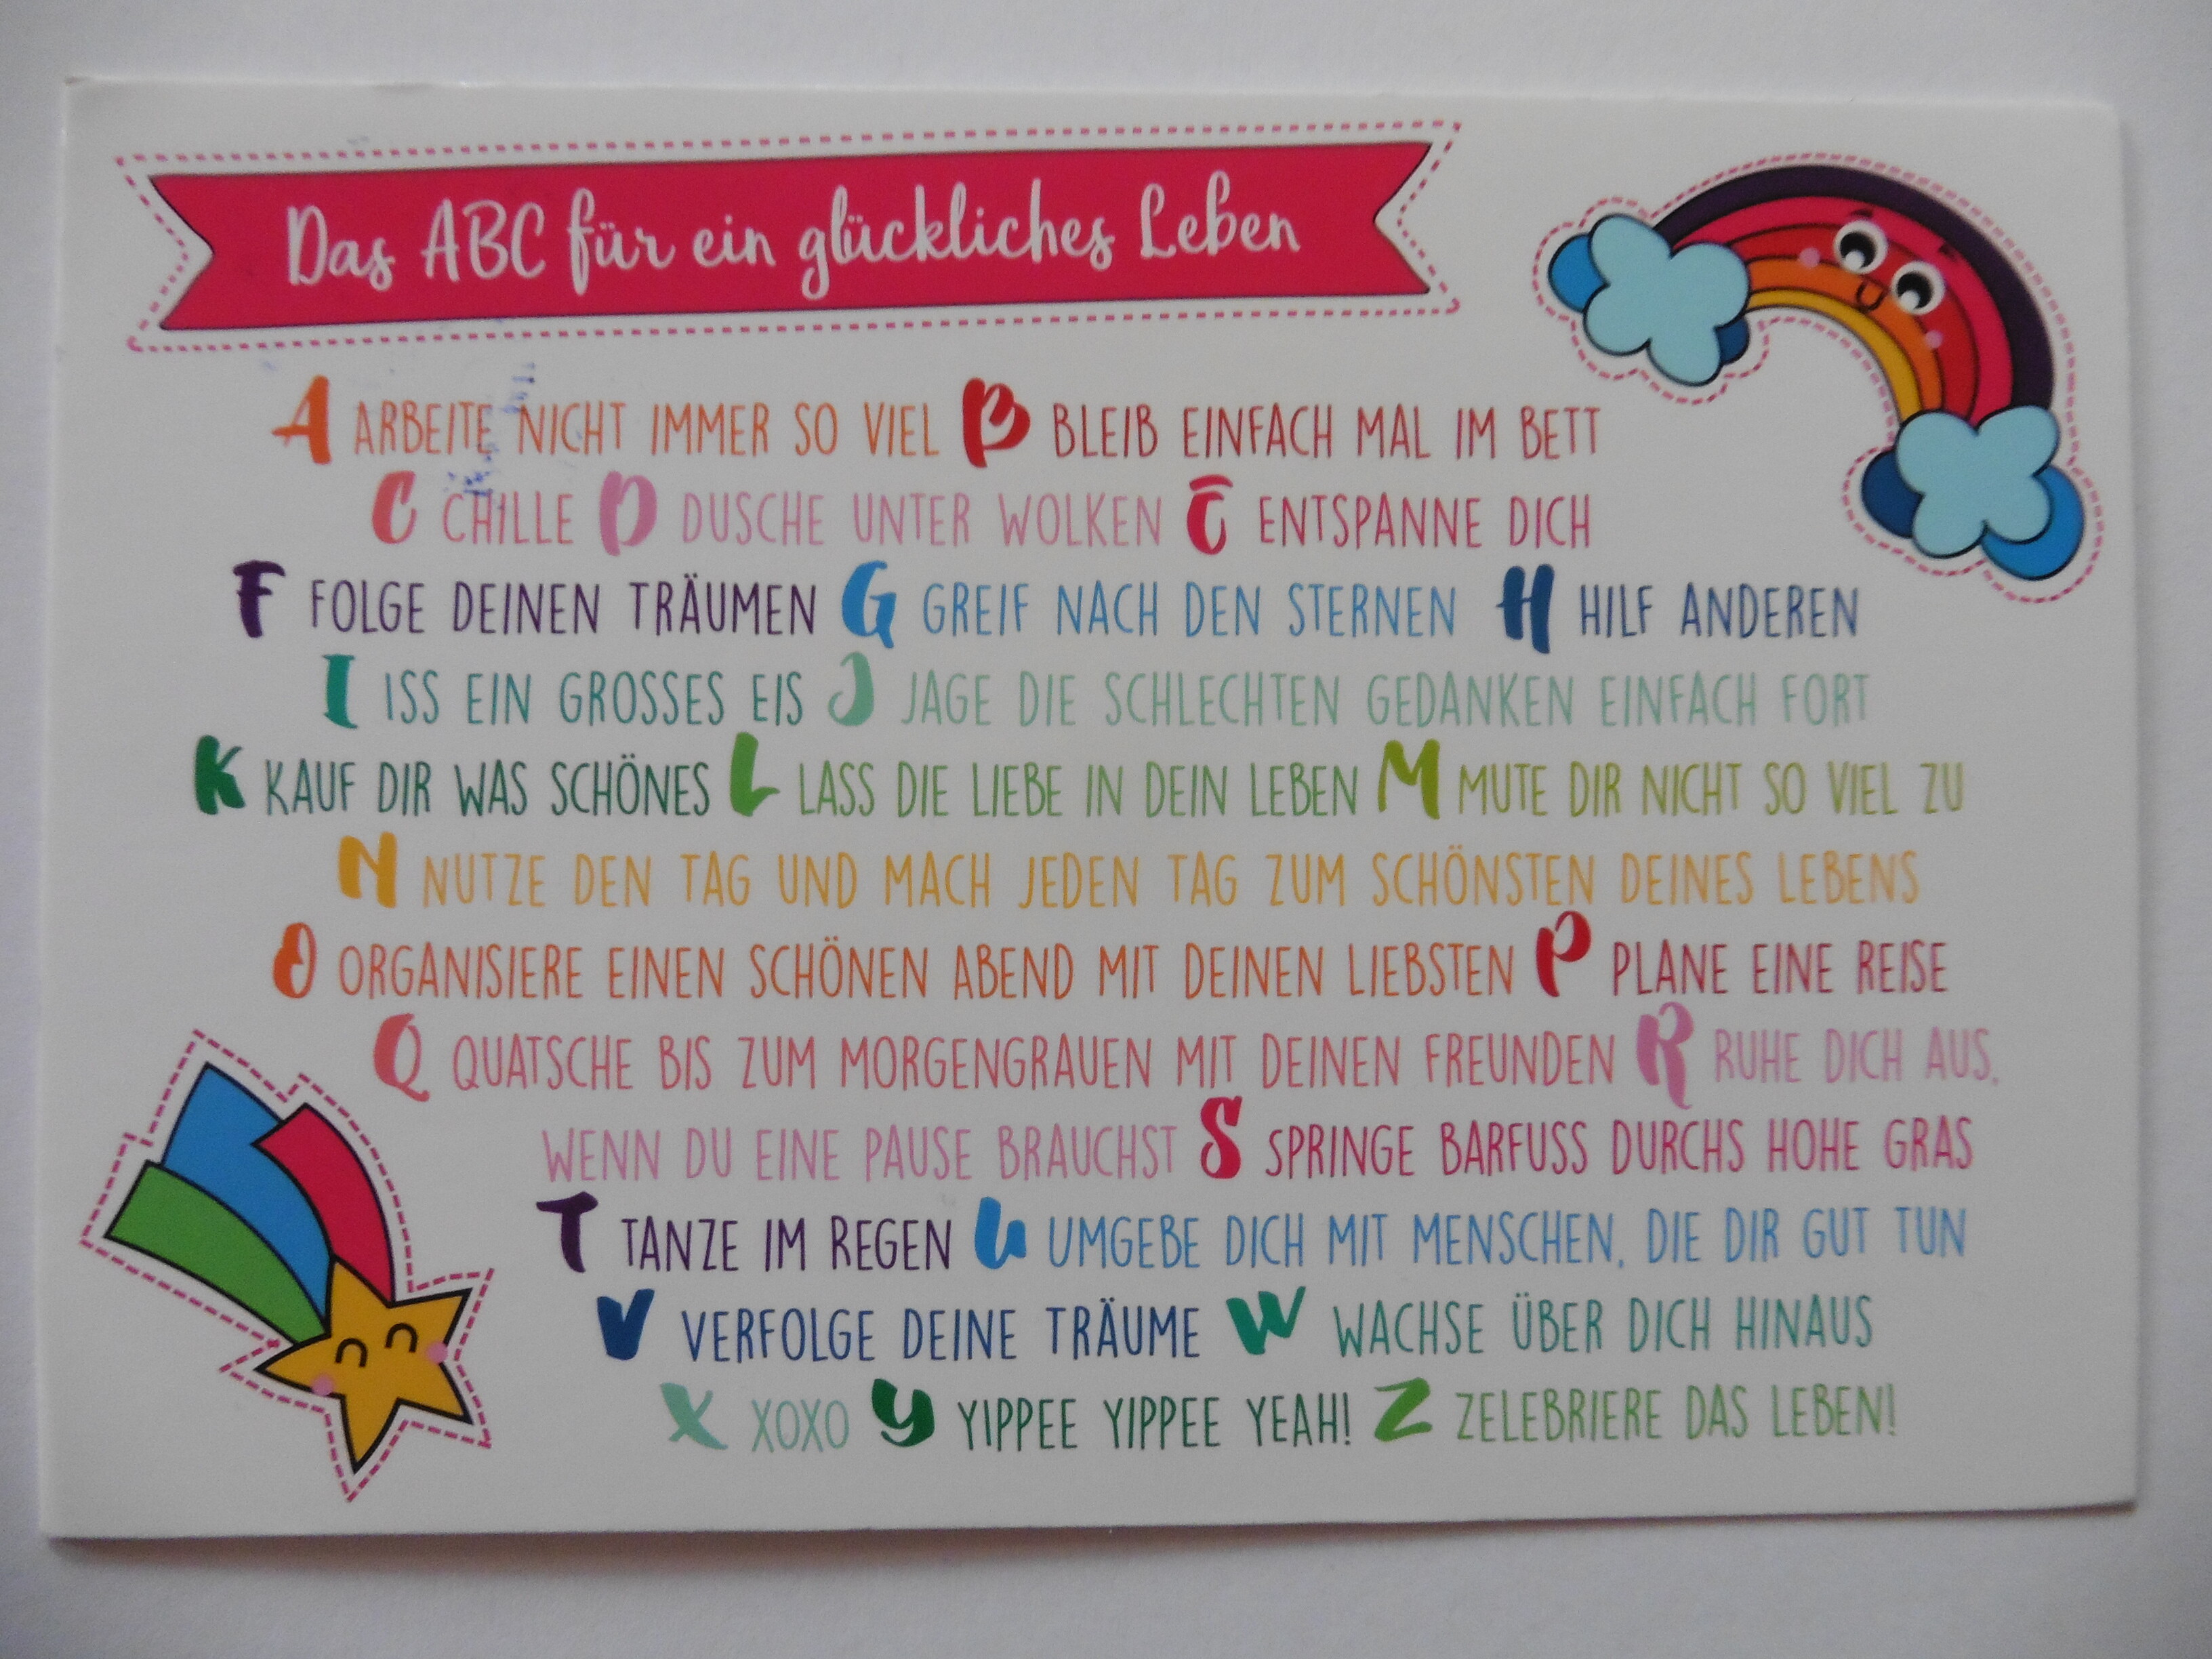 Das ABC für ein glückliches Leben
A ARBEITE NICHT IMMER SO VIEL B BLEIB EINFACH MAL IM BETT
C CHILLE D DUSCHE UNTER WOLKEN E ENTSPANNE DICH
F FOLGE DEINEN TRÄUMEN G GREIF NACH DEN STERNEN H HILF ANDEREN
I ISS EIN GROSSES EIS J JAGE DIE SCHLECHTEN GEDANKEN EINFACH FORT
K KAUF DIR WAS SCHÖNES L LASS DIE LIEBE IN DEIN LEBEN M MUTE DIR NICHT SO VIEL ZU
N NUTZE DEN TAG UND MACH JEDEN TAG ZUM SCHÖNSTEN DEINES LEBENS
O ORGANISIERE EINEN SCHÖNEN ABEND MIT DEINEN LIEBSTEN P PLANE EINE REISE
Q QUATSCHE BIS ZUM MORGENGRAUEN MIT DEINEN FREUNDEN R RUHE DICH AUS,
WENN DU EINE PAUSE BRAUCHST S SPRINGE BARFUSS DURCHS HOHE GRAS
T TANZE IM REGEN U UMGEBE DICH MIT MENSCHEN, DIE DIR GUT TUN
V VERFOLGE DEINE TRÄUME W WACHSE ÜBER DICH HINAUS
X XOXO Y YIPPEE YIPPEE YEAH! Z ZELEBRIERE DAS LEBEN!